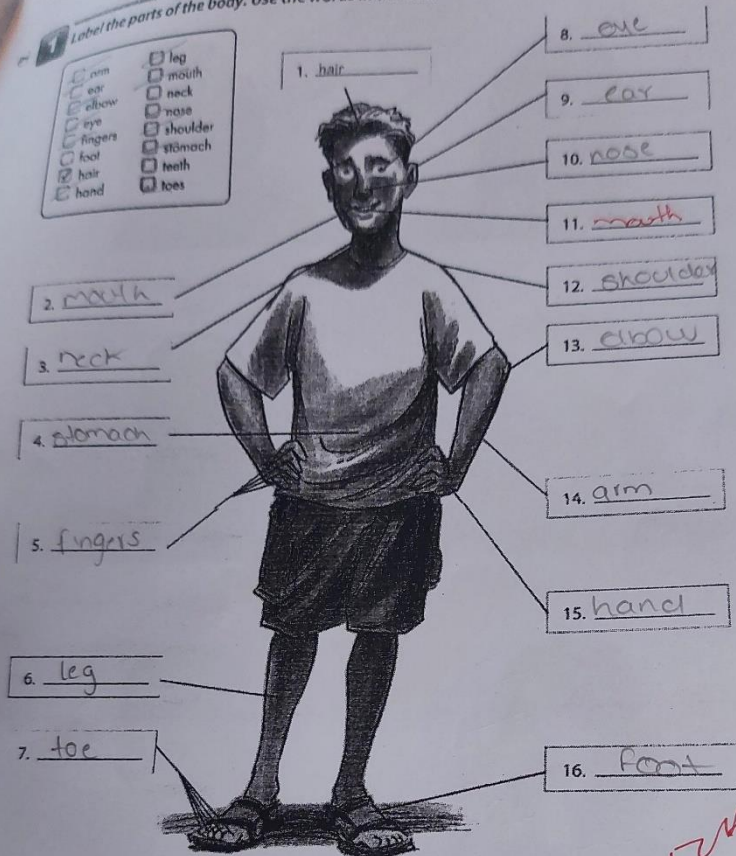 1 Label the parts of the body. Use the
arm
ear
elbow
eye
fingers
foot
hair
hand
leg
mouth
neck
nose
shoulder
stomach
teeth
toes
1. hair
2. mouth
3. neck
4. stomach
5. fingers
6. leg
7. toe
8. eye
9. ear
10. nose
11. mouth
12. shoulder
13. elbow
14. arm
15. hand
16. foot